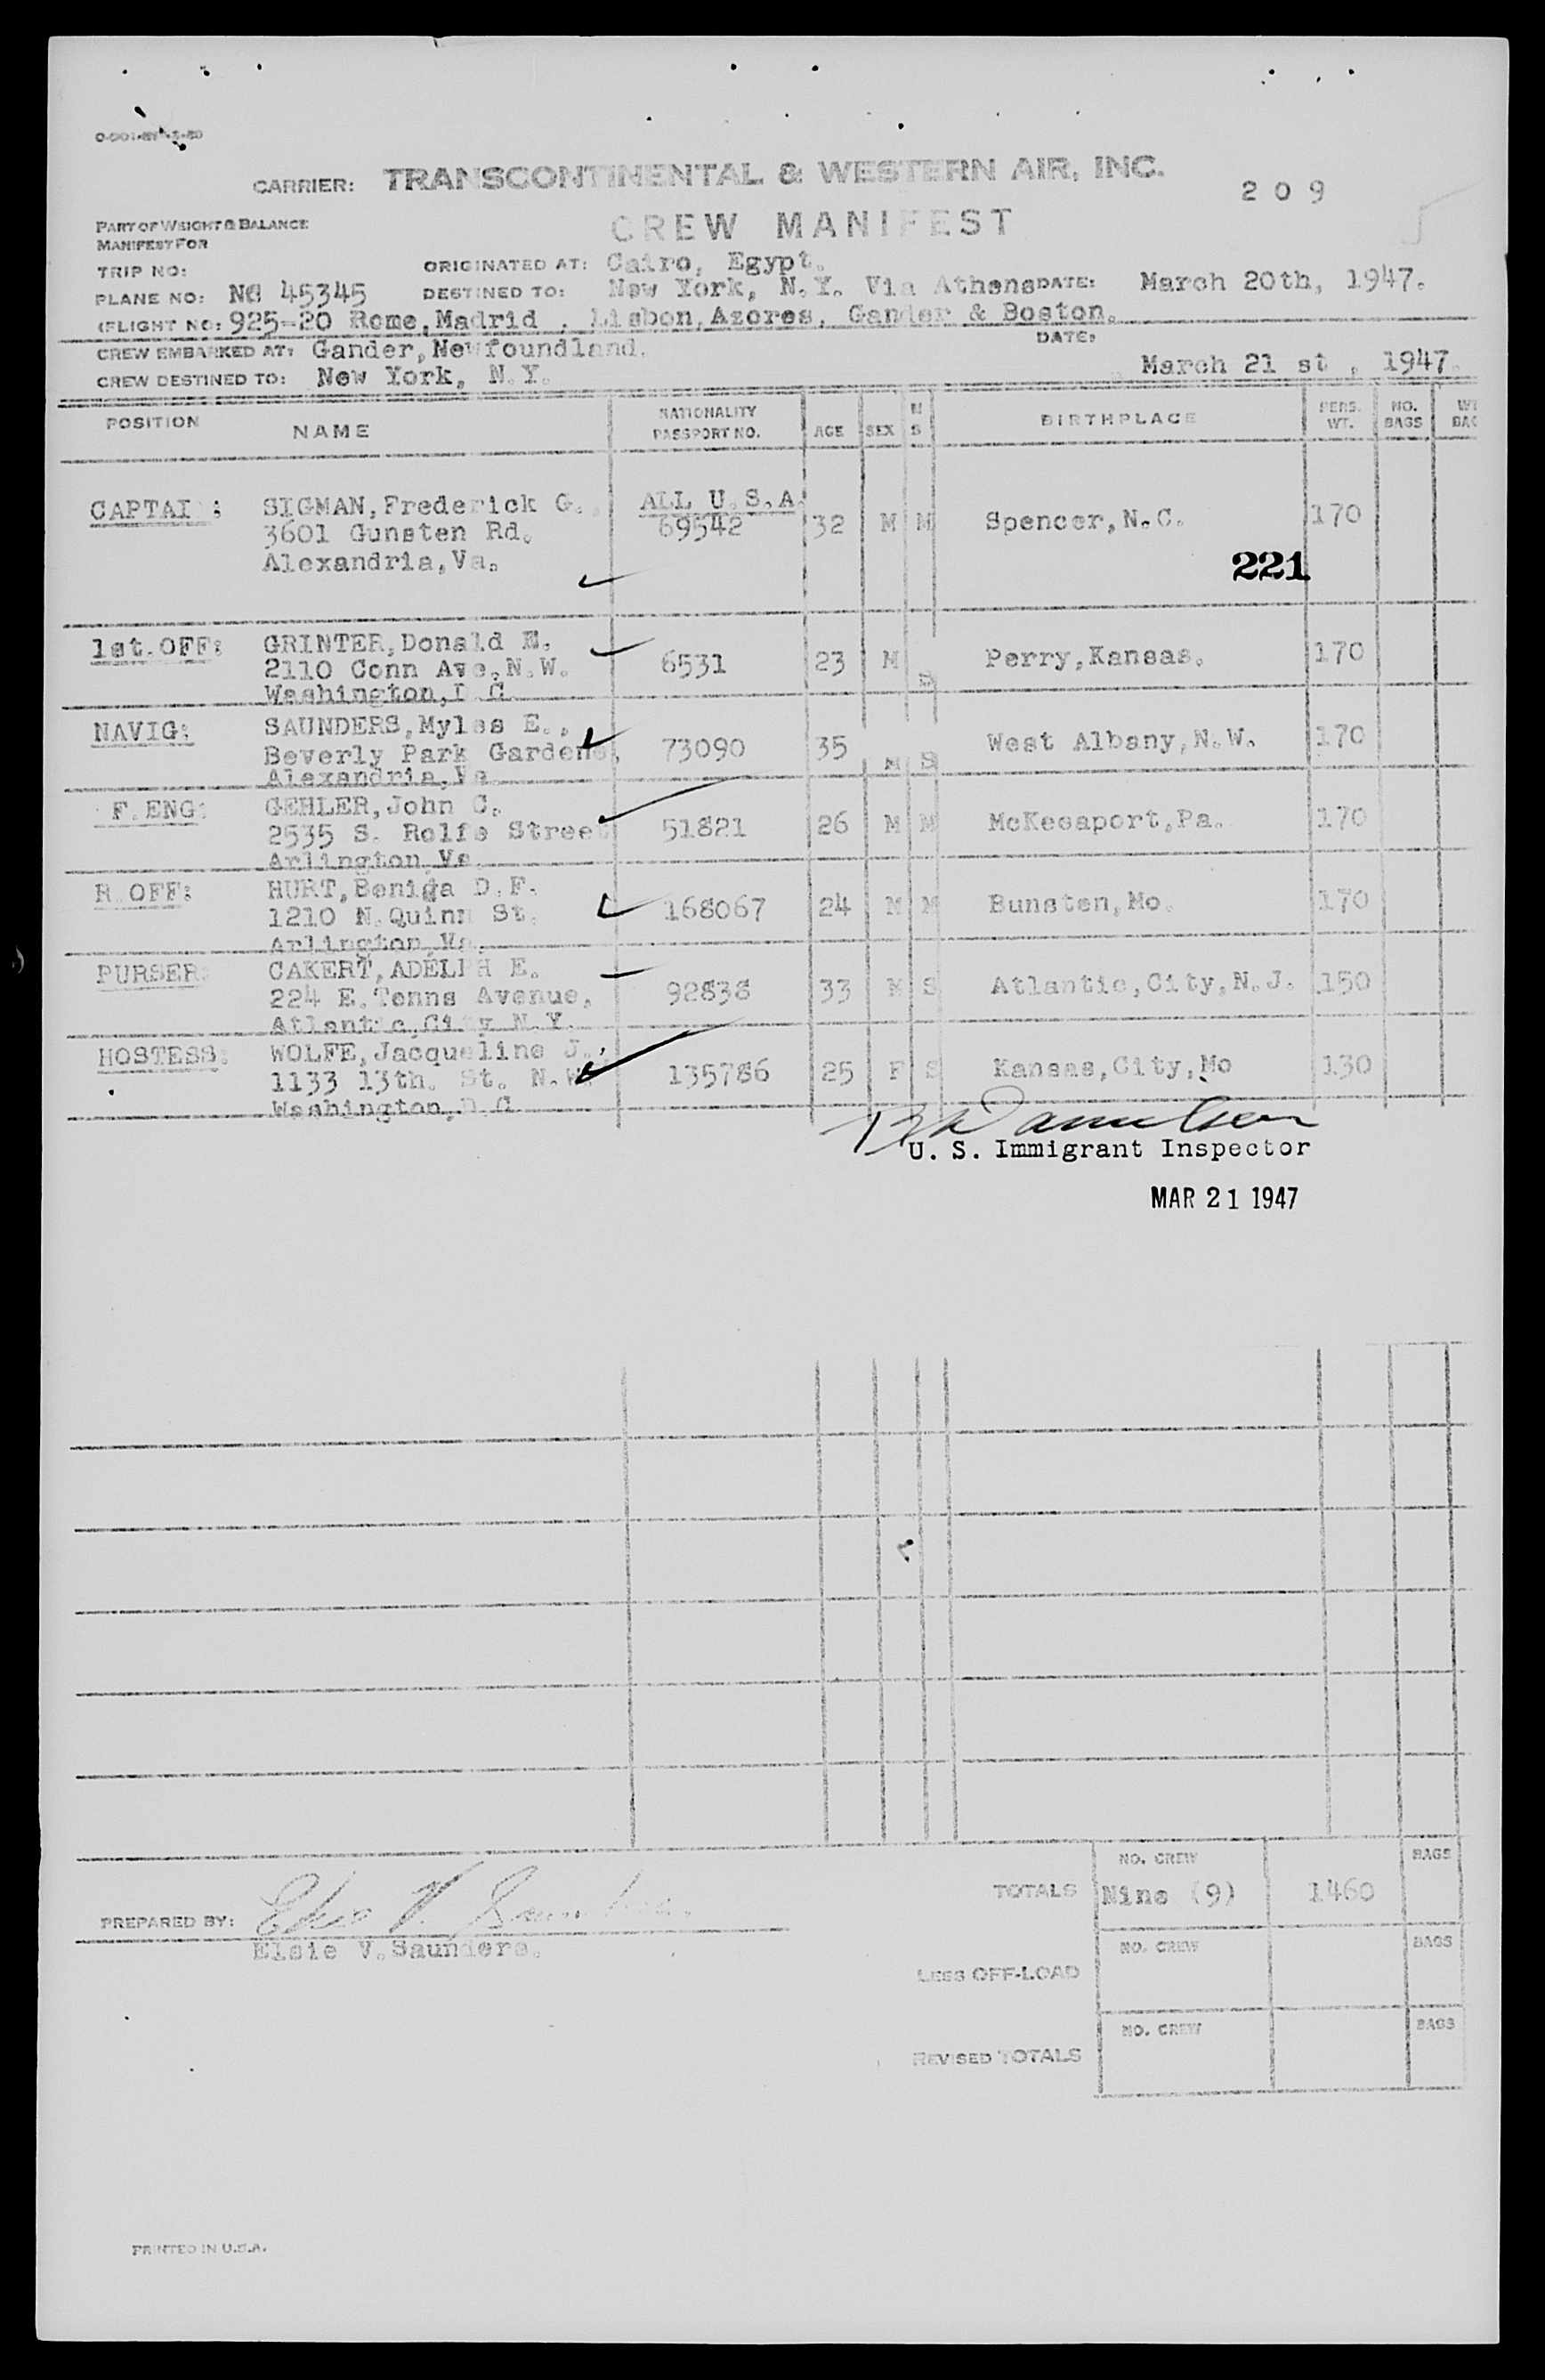 CARRIER: TRANSCONTINENTAL & WESTERN AIR, INC.
209
PART OF WEIGHT & BALANCE
MANIFEST FOR
CREW MANIFEST
TRIP NO: ORIGINATED AT: Cairo, Egypt.
PLANE NO: NC 45345 DESTINED TO: New York, N.Y. Via Athens DATE: March 20th, 1947.
(FLIGHT NO: 925-20 Rome, Madrid , Lisbon, Azores, Gander & Boston.
CREW EMBARKED AT: Gander, Newfoundland. DATE:
CREW DESTINED TO: New York, N.Y. March 21 st , 1947.
POSITION NAME NATIONALITY PASSPORT NO. AGE SEX M S BIRTHPLACE PERS. WT. NO. BAGS WT BAG
CAPTAI : SIGMAN, Frederick G. ALL U.S.A.
3601 Gunsten Rd. 69542 32 M M Spencer, N.C. 170
Alexandria, Va.
221
1st. OFF: GRINTER, Donald E.
2110 Conn Ave, N.W. 6531 23 M S Perry, Kansas. 170
Washington, D.C.
NAVIG: SAUNDERS, Myles E.,
Beverly Park Gardens, 73090 35 M S West Albany, N.W. 170
Alexandria, Va
F. ENG: GEHLER, John C.
2535 S. Rolfe Street 51821 26 M M McKeesport, Pa. 170
Arlington Va.
R. OFF: HURT, Beniga D.F.
1210 N. Quinn St. 168067 24 M M Bunsten, Mo. 170
Arlington, Va.
PURSER: CAKERT, ADELPH E.
224 E. Tenns Avenue, 92838 33 M S Atlantic, City, N.J. 150
Atlantic, City N.Y.
HOSTESS: WOLFE, Jacqueline J.,
1133 13th. St. N.W. 135786 25 F S Kansas, City, Mo 130
Washington, D.C
U. S. Immigrant Inspector
MAR 21 1947
NO. CREW BAGS
TOTALS Nine (9) 1460
PREPARED BY: Elsie V. Saunders.
Elsie V. Saunders.
NO. CREW BAGS
LESS OFF-LOAD
NO. CREW BAGS
REVISED TOTALS
PRINTED IN U.S.A.